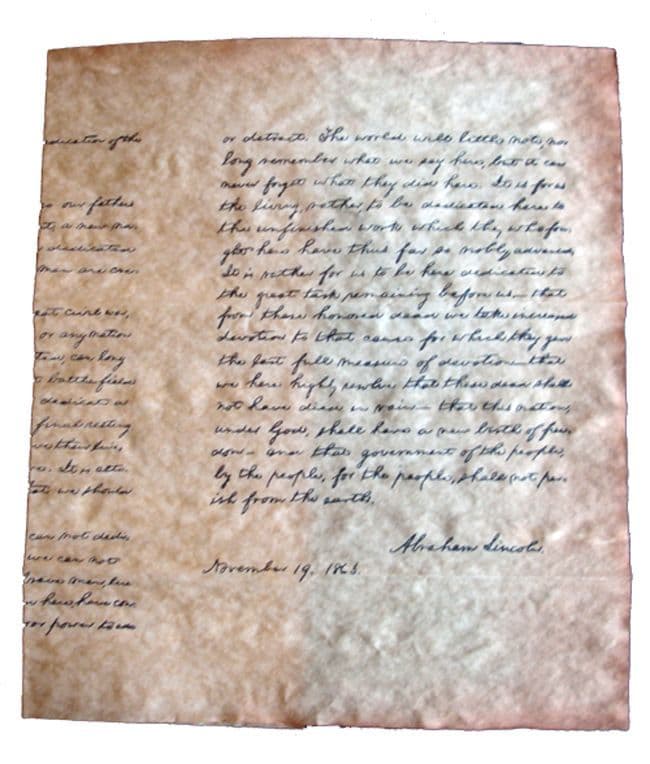 edication of the
go our fathers
nt, a new na-
dedicated
men are cre-
eat civil war,
or any nation
tion can long
t battlefield
dedicate a
final resting
ve their lives,
ve. It is alto-
that we should
can not dedi-
we can not
brave men, live
here, have con-
oor power to add
or detract. The world will little note, nor
long remember what we say here, but it can
never forget what they did here. It is for us
the living, rather, to be dedicated here to
the unfinished work which they who fou-
ght here have thus far so nobly advanced.
It is rather for us to be here dedicated to
the great task remaining before us— that
from these honored dead we take increased
devotion to that cause for which they gave
the last full measure of devotion— that
we here highly resolve that these dead shall
not have died in vain— that this nation,
under God, shall have a new birth of free-
dom— and that government of the people,
by the people, for the people, shall not per-
ish from the earth.
Abraham Lincoln.
November 19, 1863.